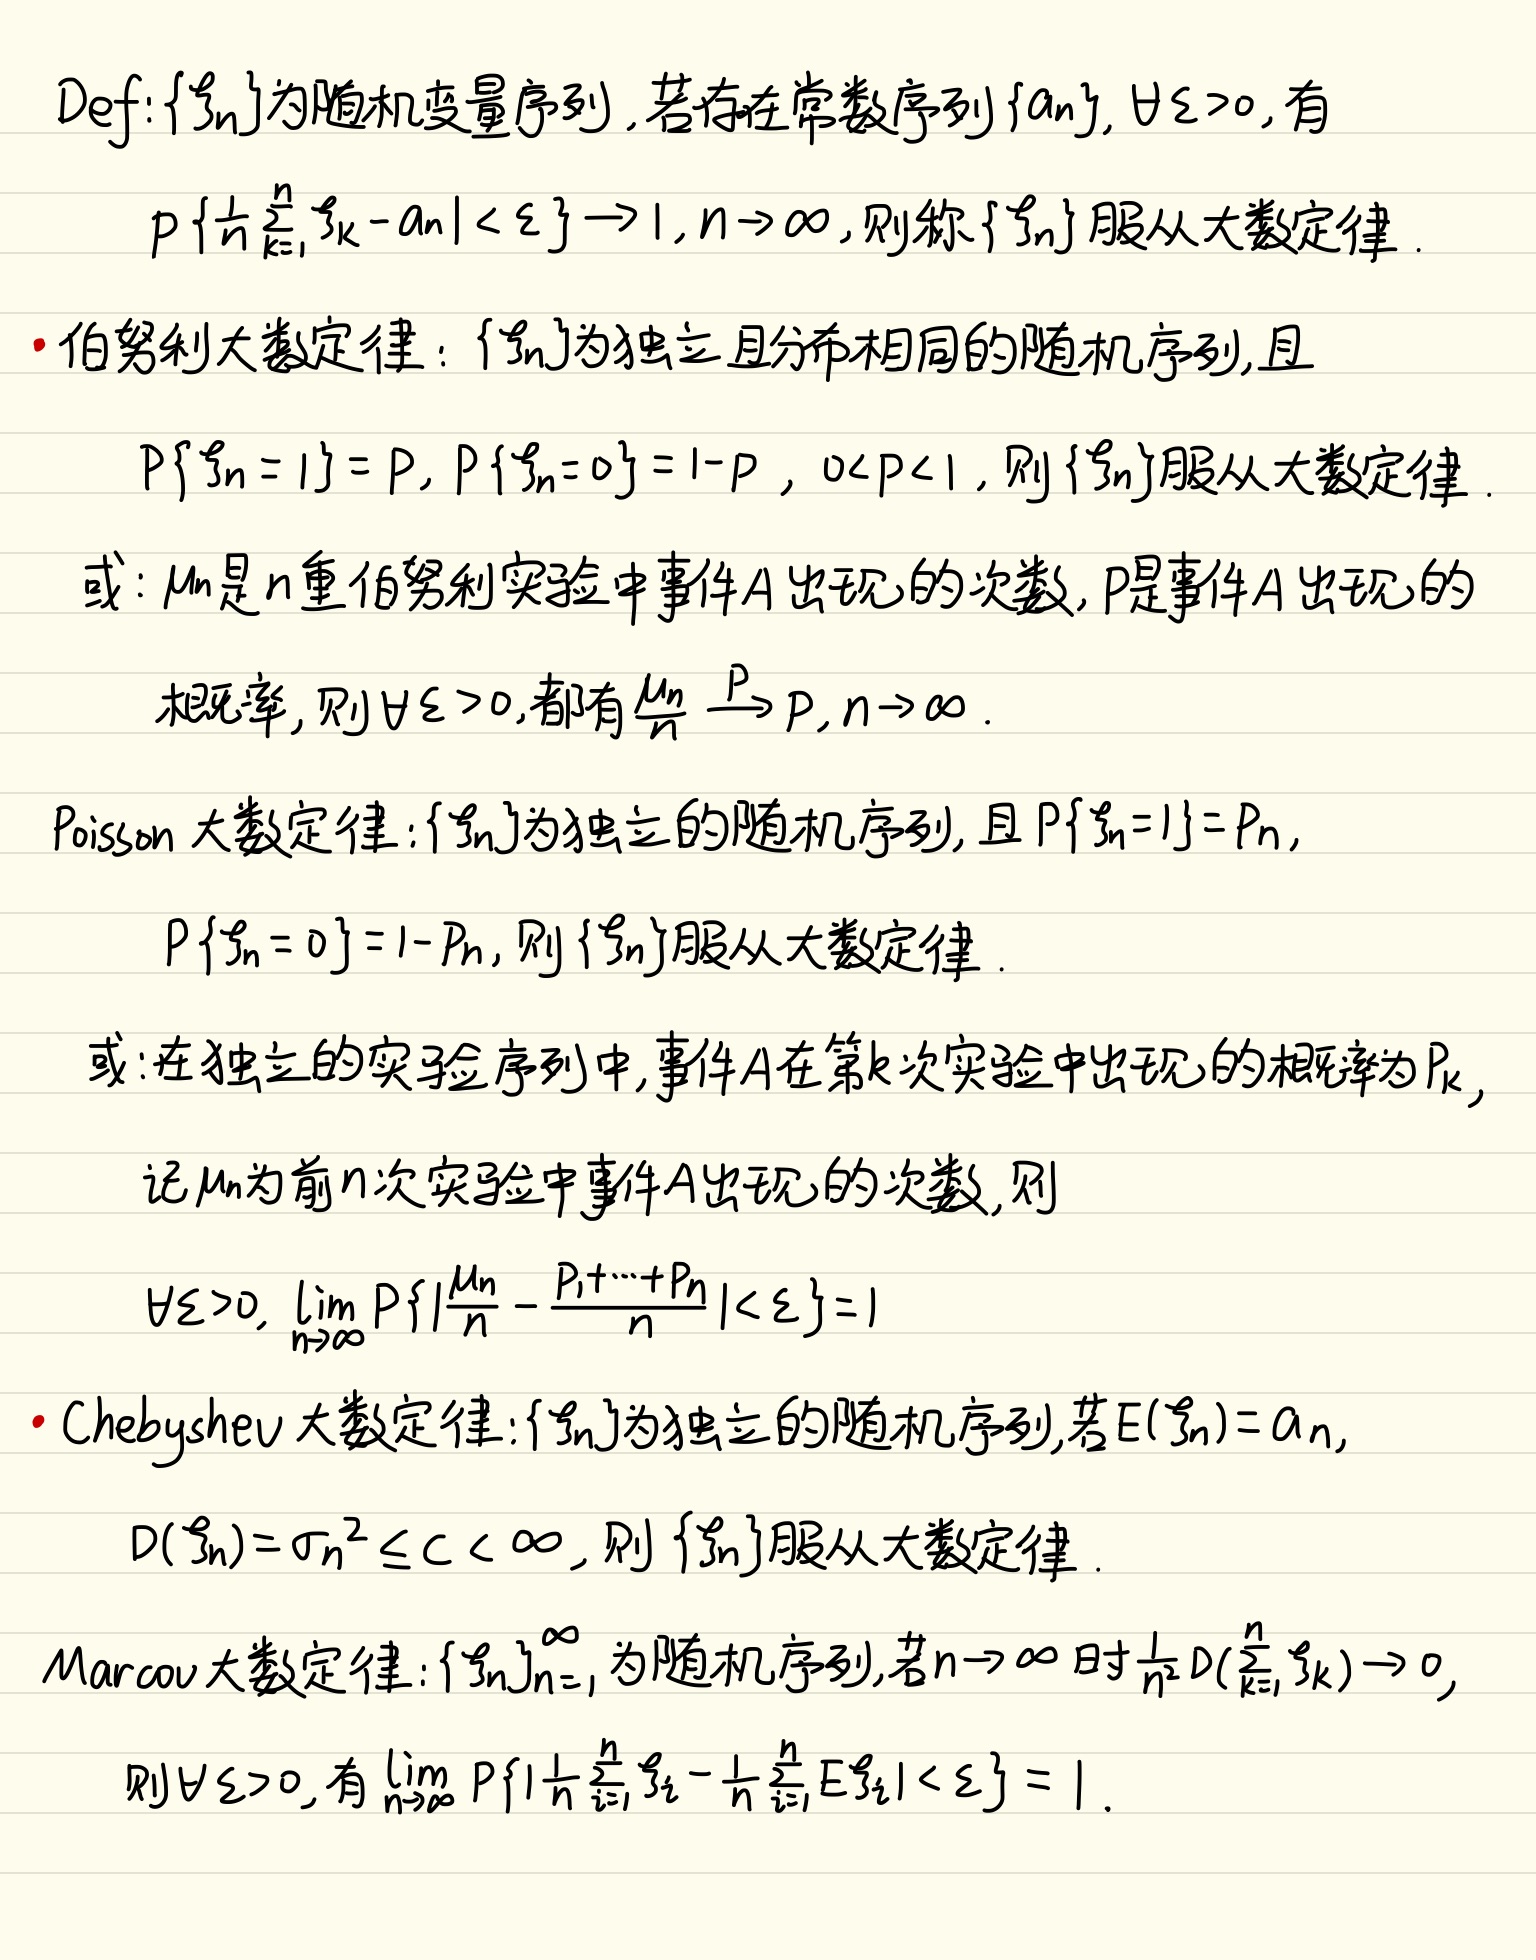 Def:{ξn}为随机变量序列,若存在常数序列{an},∀ε>0,有
P{1/n ∑_{k=1}^{n} ξk - an|<ε}→1,n→∞,则称{ξn}服从大数定律.
·伯努利大数定律:{ξn}为独立且分布相同的随机序列,且
P{ξn=1}=P,P{ξn=0}=1-P,0<P<1,则{ξn}服从大数定律.
或:μn是n重伯努利实验中事件A出现的次数,P是事件A出现的
概率,则∀ε>0,都有 μn/n \xrightarrow{P} P,n→∞.
Poisson大数定律:{ξn}为独立的随机序列,且P{ξn=1}=Pn,
P{ξn=0}=1-Pn,则{ξn}服从大数定律.
或:在独立的实验序列中,事件A在第k次实验中出现的概率为Pk,
记μn为前n次实验中事件A出现的次数,则
∀ε>0, lim_{n→∞} P{|μn/n - (P1+⋯+Pn)/n|<ε}=1
·Chebyshev大数定律:{ξn}为独立的随机序列,若E(ξn)=an,
D(ξn)=σn²≤c<∞,则{ξn}服从大数定律.
Marcov大数定律:{ξn}_{n=1}^{∞}为随机序列,若n→∞时 1/n² D(∑_{k=1}^{n} ξk)→0,
则∀ε>0,有 lim_{n→∞} P{|1/n ∑_{i=1}^{n} ξi - 1/n ∑_{i=1}^{n} Eξi|<ε}=1.